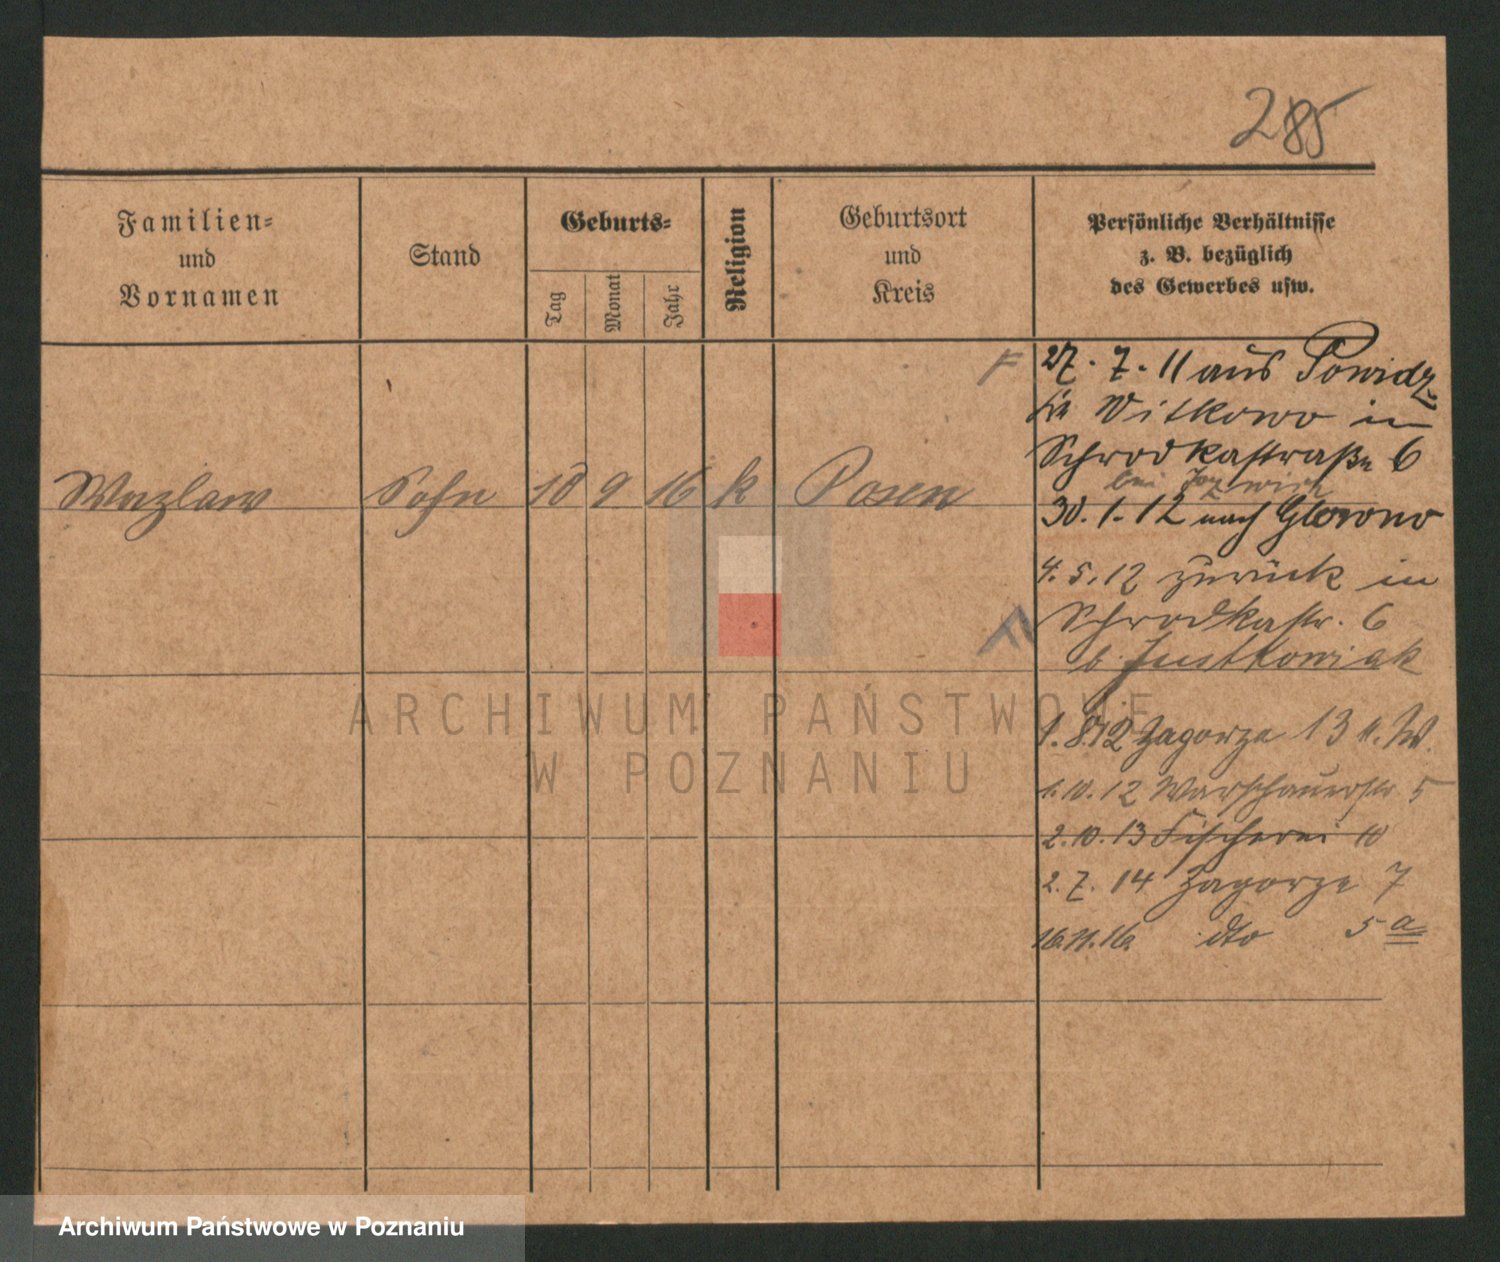 285
Familien-
und
Vornamen
Stand
Geburts-
Tag
Monat
Jahr
Religion
Geburtsort
und
Kreis
Persönliche Verhältnisse
z. B. bezüglich
des Gewerbes usw.
Wazlaw Sohn 18 9 16 k Posen
27. 7. 11 aus Powidz
Witkowo in
Schrodkastraße 6
bei
30. 1. 12 nach Glowno
4. 5. 12 zurück in
Schrodkastr. 6
b. Justkowiak
1. 8. 12 Zagorze 13
1. 10. 12 Warschauerstr 5
2. 10. 13 Fischerei 10
2. 7. 14 Zagorze 7
16. 11. 16. dto 5 a
ARCHIWUM PAŃSTWOWE
W POZNANIU
Archiwum Państwowe w Poznaniu